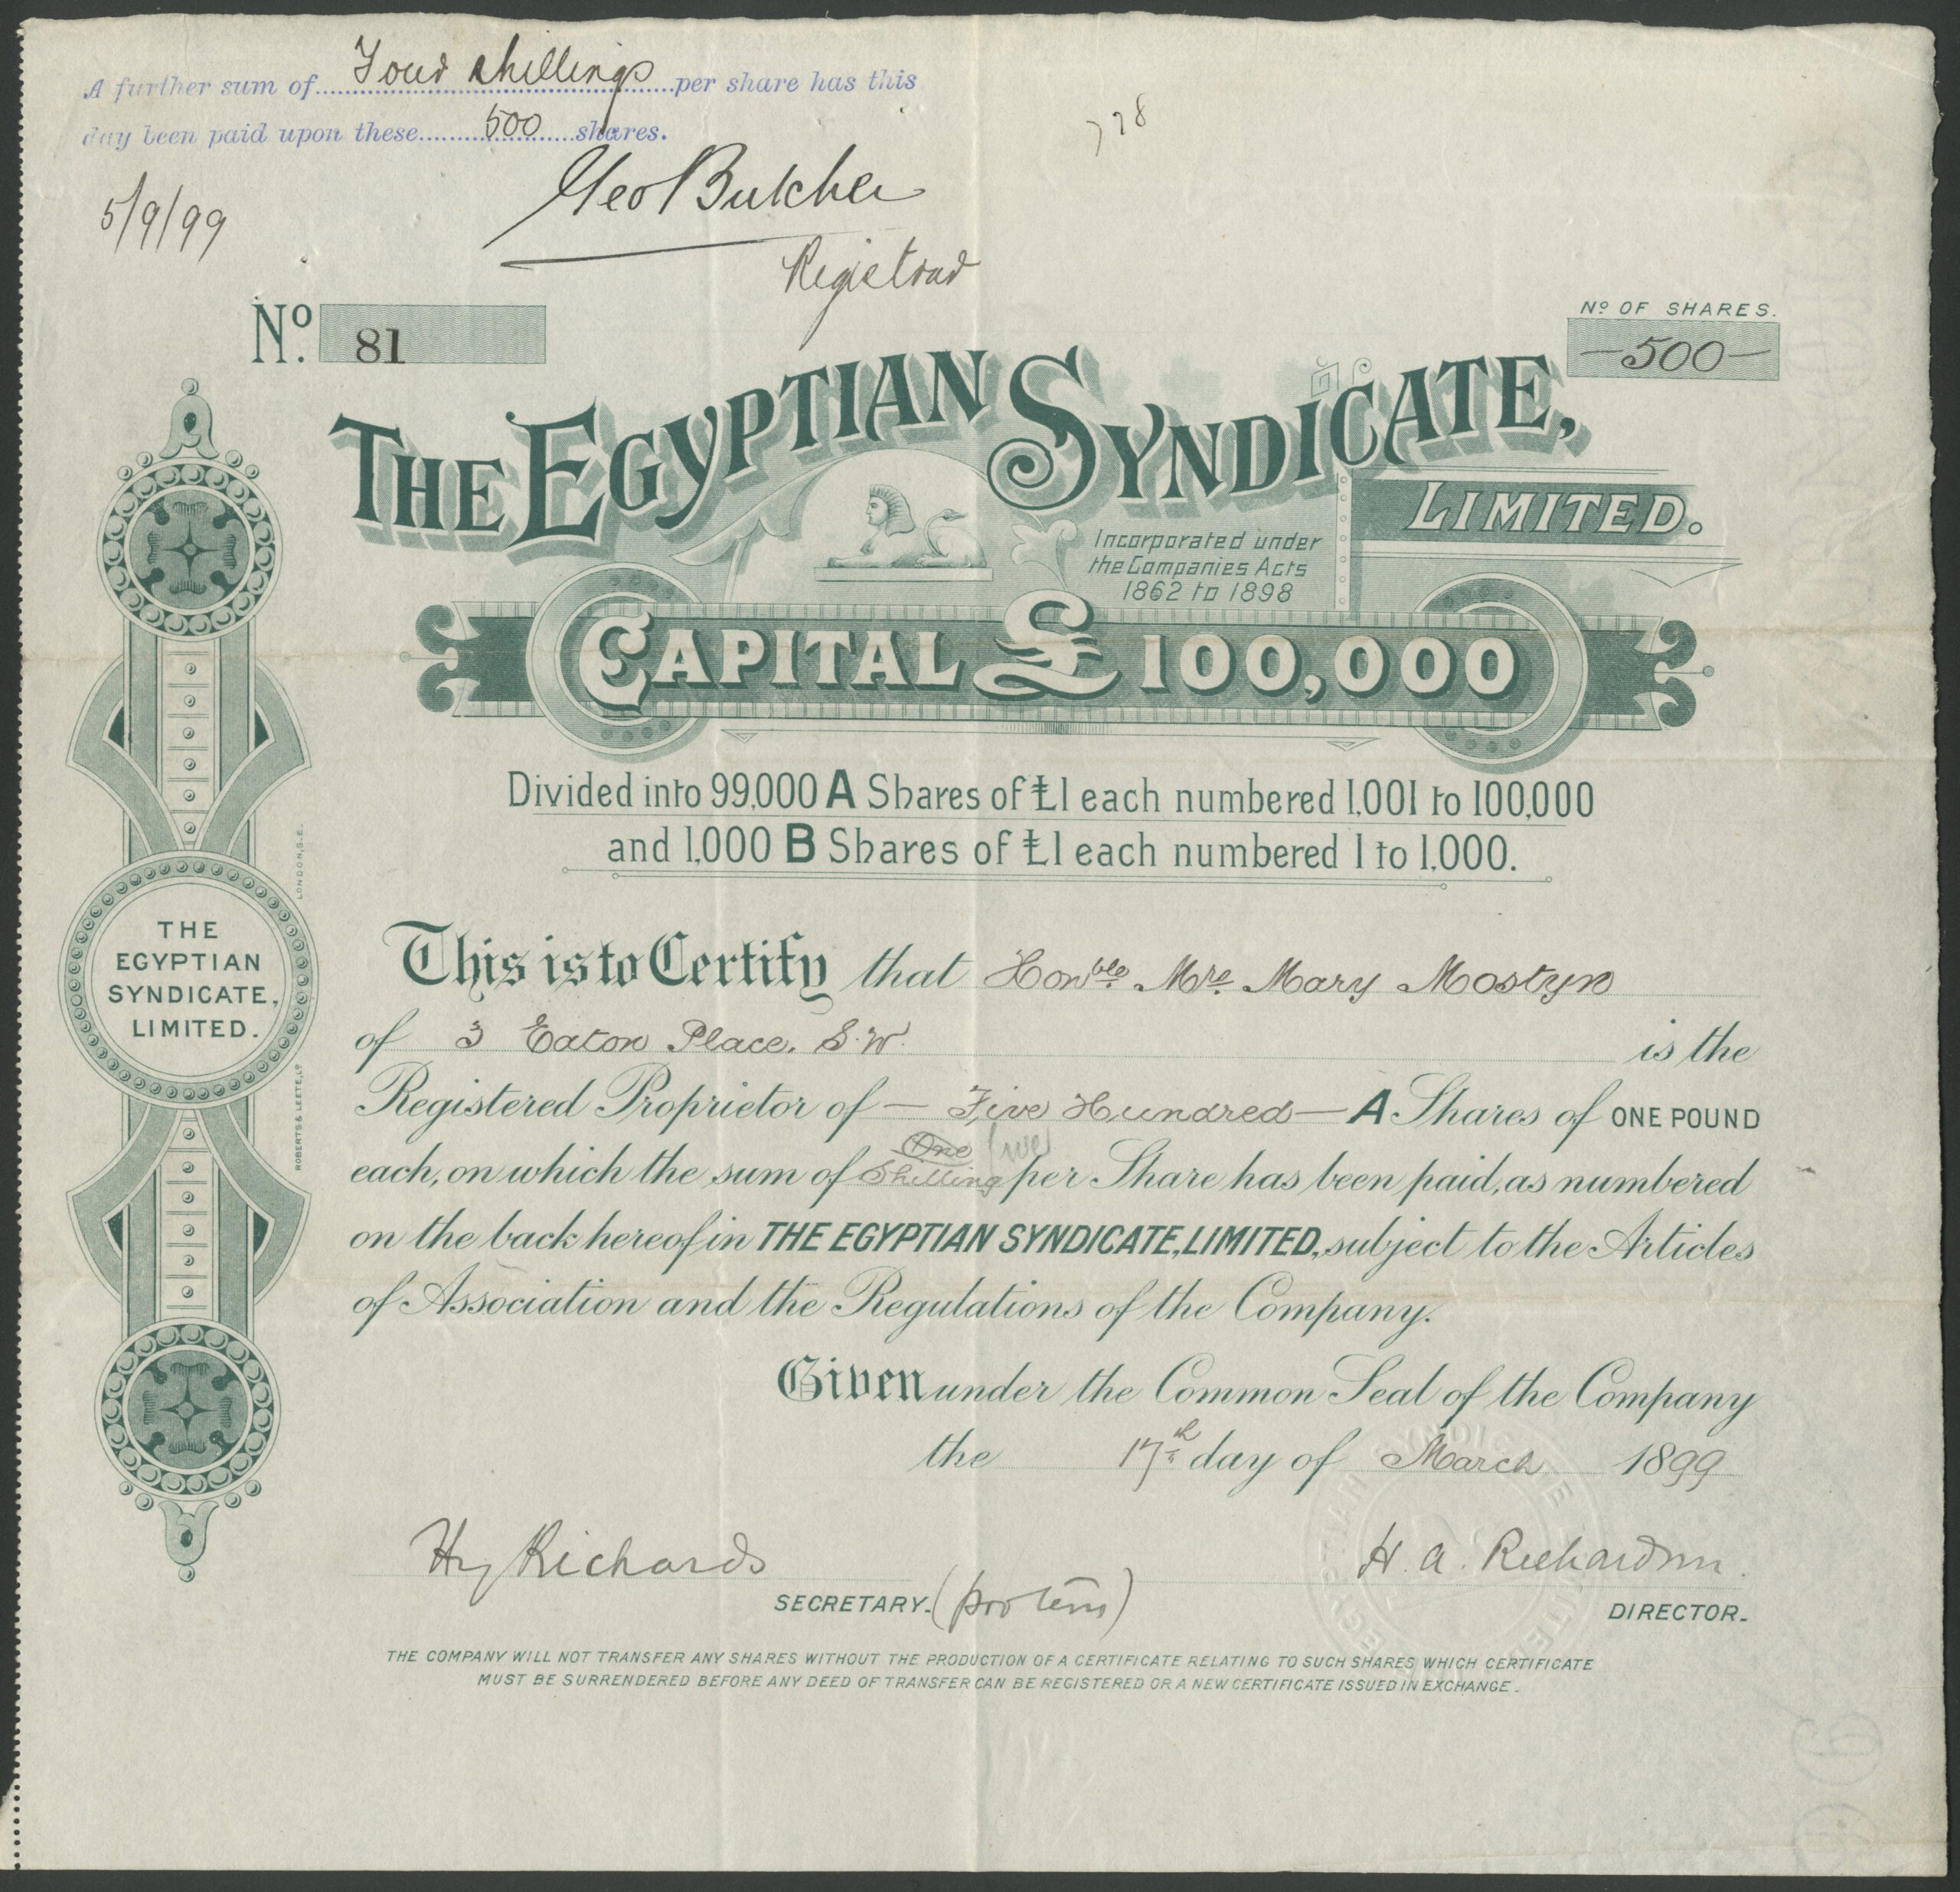 A further sum of Four shillings per share has this
day been paid upon these 500 shares.
778
5/9/99
Geo Butcher
Registrar
No. 81
No OF SHARES.
—500—
THE EGYPTIAN SYNDICATE,
LIMITED.
Incorporated under
the Companies Acts
1862 to 1898
CAPITAL £100,000
Divided into 99,000 A Shares of £1 each numbered 1,001 to 100,000
and 1,000 B Shares of £1 each numbered 1 to 1,000.
THE
EGYPTIAN
SYNDICATE,
LIMITED.
ROBERTS & LEETE, Ld
LONDON, S.E.
This is to Certify that Honble Mrs Mary Mostyn
of 3 Eaton Place. S.W. is the
Registered Proprietor of — Five Hundred — A Shares of ONE POUND
One five
each, on which the sum of Shilling per Share has been paid, as numbered
on the back hereof in THE EGYPTIAN SYNDICATE, LIMITED, subject to the Articles
of Association and the Regulations of the Company.
Given under the Common Seal of the Company
the 17th day of March 1899
Hy Richards
SECRETARY. (pro tem)
H. A. Richardson.
DIRECTOR.
EGYPTIAN SYNDICATE LIMITED
THE COMPANY WILL NOT TRANSFER ANY SHARES WITHOUT THE PRODUCTION OF A CERTIFICATE RELATING TO SUCH SHARES WHICH CERTIFICATE
MUST BE SURRENDERED BEFORE ANY DEED OF TRANSFER CAN BE REGISTERED OR A NEW CERTIFICATE ISSUED IN EXCHANGE.